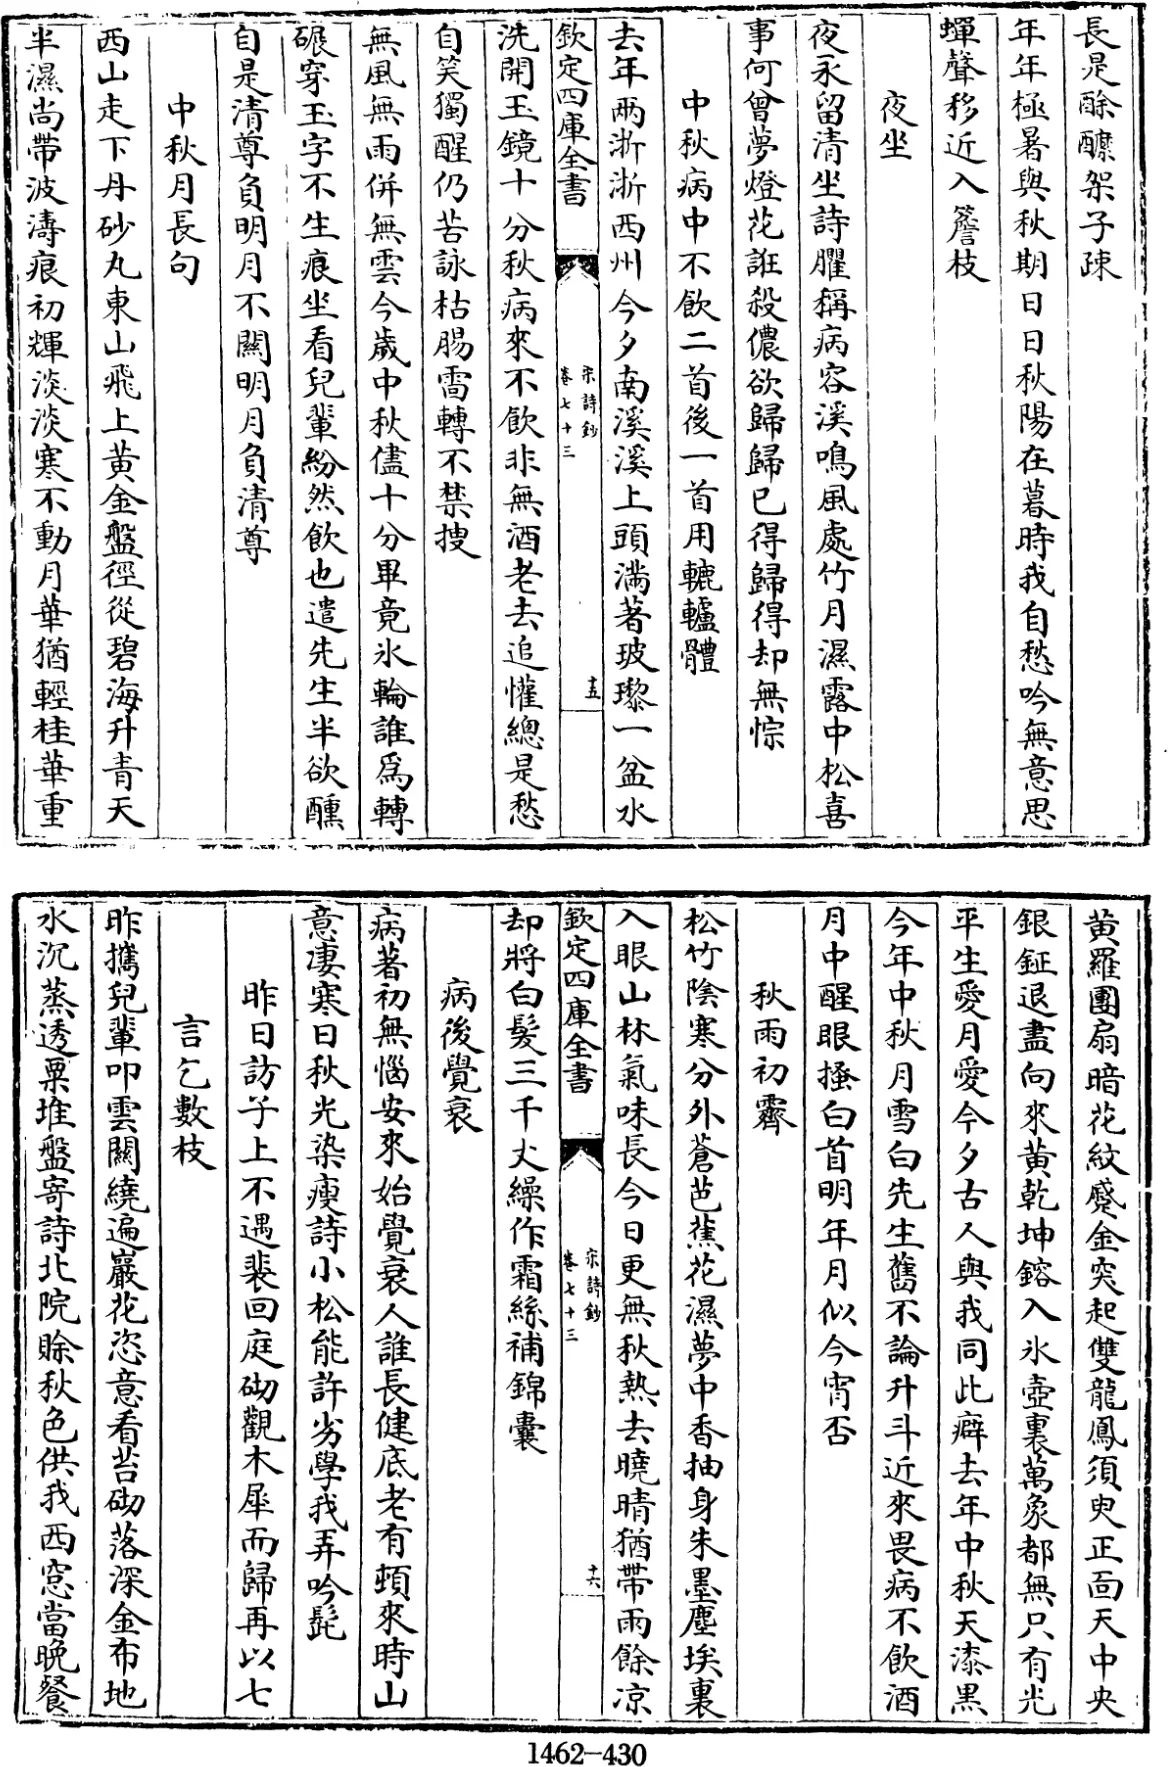 長是酴醿架子疎
年年極暑與秋期日日秋陽在暮時我自愁吟無意思
蟬聲移近入簷枝
夜坐
夜永留清坐詩臞稱病容溪鳴風處竹月濕露中松喜
事何曾夢燈花誑殺儂欲歸歸已得歸得却無悰
中秋病中不飲二首後一首用轆轤體
去年兩浙浙西州今夕南溪溪上頭滿著玻瓈一盆水
欽定四庫全書
宋詩鈔
卷七十三
十五
洗開玉鏡十分秋病來不飲非無酒老去追懽總是愁
自笑獨醒仍苦詠枯腸雷轉不禁搜
無風無雨併無雲今歲中秋儘十分畢竟氷輪誰爲轉
碾穿玉字不生痕坐看兒輩紛然飲也遣先生半欲醺
自是清尊負明月不關明月負清尊
中秋月長句
西山走下丹砂丸東山飛上黄金盤徑從碧海升青天
半濕尚帶波濤痕初輝淡淡寒不動月華猶輕桂華重
黄羅團扇暗花紋蹙金突起雙龍鳳須臾正靣天中央
銀鉦退盡向來黄乾坤鎔入氷壺裏萬象都無只有光
平生愛月愛今夕古人與我同此癖去年中秋天漆黑
今年中秋月雪白先生舊不論升斗近來畏病不飲酒
月中醒眼搔白首明年月似今宵否
秋雨初霽
松竹陰寒分外蒼芭蕉花濕夢中香抽身朱墨塵埃裏
入眼山林氣味長今日更無秋熱去曉晴猶帶雨餘凉
欽定四庫全書
宋詩鈔
卷七十三
十六
却將白髮三千丈繰作霜絲補錦囊
病後覺衰
病著初無惱安來始覺衰人誰長健底老有頓來時山
意凄寒日秋光染瘦詩小松能許劣學我弄吟髭
昨日訪子上不遇裴回庭砌觀木犀而歸再以七
言乞數枝
昨攜兒輩叩雲關繞遍巖花恣意看苔砌落深金布地
水沉蒸透粟堆盤寄詩北院賒秋色供我西窓當晩餐
1462-430